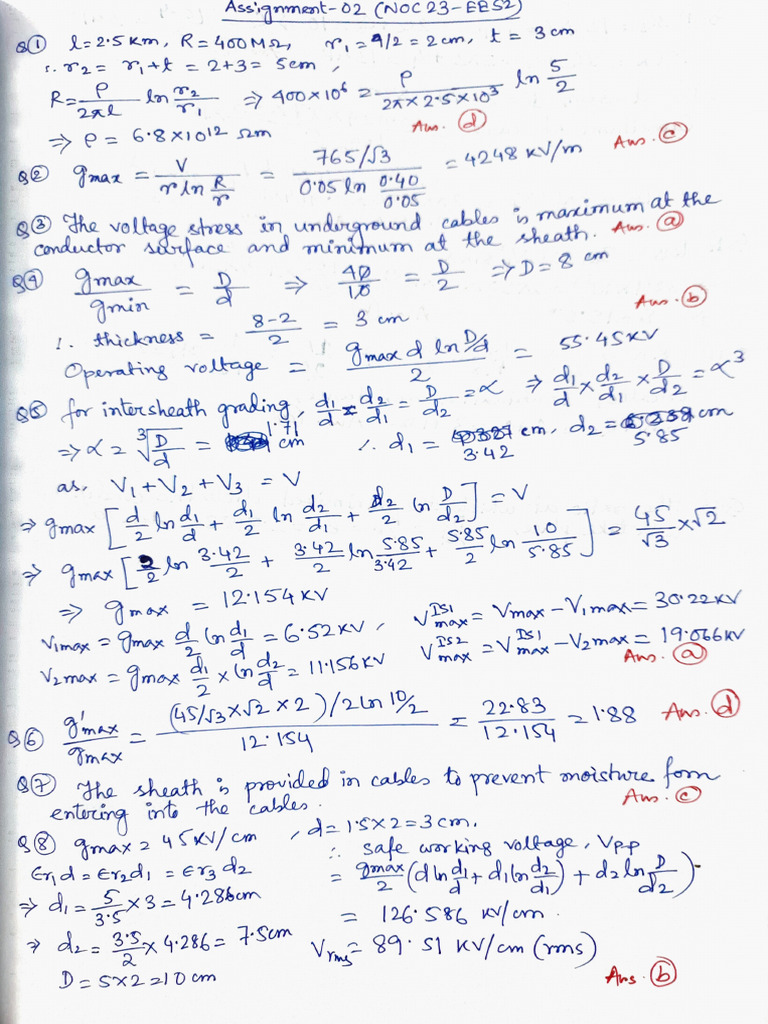 Assignment-02 (NOC23-EE52)
Q① l=2.5 Km, R=400MΩ, r₁=d/2=2cm, t = 3cm
∴ r₂ = r₁+t = 2+3= 5cm,
R= ρ/2πl ln r₂/r₁ ⇒ 400×10⁶ = ρ/2π×2.5×10³ ln 5/2
⇒ ρ = 6.8×10¹² Ωm Ans. ⓓ
Q② gmax = V/r ln R/r = 765/√3/0.05 ln 0.40/0.05 = 4248 KV/m Ans. ⓒ
Q③ The voltage stress in underground cables is maximum at the
conductor surface and minimum at the sheath. Ans. ⓐ
Q④ gmax/gmin = D/d ⇒ 40/10 = D/2 ⇒ D= 8 cm
∴ thickness = 8-2/2 = 3 cm Ans. ⓑ
Operating voltage = gmax d ln D/d/2 = 55.45KV
Q⑤ for intersheath grading, d₁/d = d₂/d₁ = D/d₂ = α ⇒ d₁/d × d₂/d₁ × D/d₂ = α³
⇒ α = ∛D/d = 1.71 cm ∴ d₁ = 3.42 cm, d₂ = 5.85 cm
as, V₁+V₂+V₃ = V
⇒ gmax [d/2 ln d₁/d + d₁/2 ln d₂/d₁ + d₂/2 ln D/d₂] = V
⇒ gmax [2/2 ln 3.42/2 + 3.42/2 ln 5.85/3.42 + 5.85/2 ln 10/5.85] = 45/√3 ×√2
⇒ gmax = 12.154KV
V₁max = gmax d/2 ln d₁/d = 6.52KV, Vmax^IS1 = Vmax - V₁max = 30.22KV
V₂max = gmax d₁/2 × ln d₂/d = 11.156KV Vmax^IS2 = Vmax^IS1 - V₂max = 19.066KV
Ans. ⓐ
Q⑥ g'max/gmax = (45/√3×√2×2)/2 ln 10/2/12.154 = 22.83/12.154 = 1.88 Ans. ⓓ
Q⑦ The sheath is provided in cables to prevent moisture form
entering into the cables. Ans. ⓒ
Q⑧ gmax = 45KV/cm, d=1.5×2=3cm.
Er₁d = Er₂d₁ = Er₃d₂
⇒ d₁ = 5/3.5 ×3 = 4.286cm
⇒ d₂ = 3.5/2 × 4.286 = 7.5cm
D = 5×2 = 10 cm
∴ safe working voltage, Vp.p
= gmax/2 (d ln d₁/d + d₁ ln d₂/d₁) + d₂ ln D/d₂)
= 126.586 KV/cm.
Vrms = 89.51 KV/cm (rms)
Ans. ⓑ